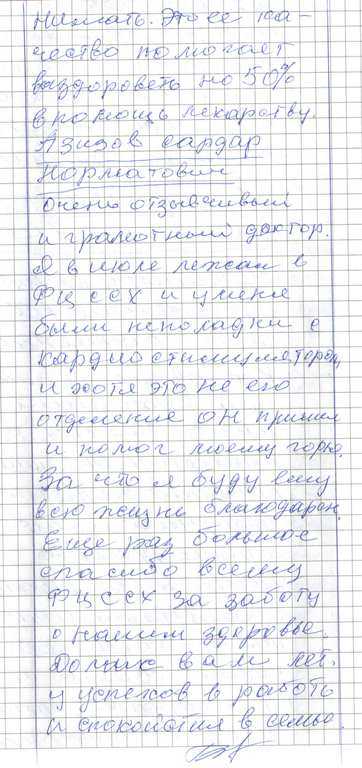 нимать. Это ее ка-
чество помогает
выздороветь на 50%
в помощь лекарству.
Азизов сардар
Норматович
очень отзывчивый
и грамотный доктор.
Я в июле лежал в
ФЦССХ и у меня
были неполадки с
кардиостимулятором,
и хотя это не его
отделение он пришел
и помог моему горю.
За что я буду ему
всю жизнь благодарен.
Еще раз большое
спасибо всему
ФЦССХ за заботу
о нашем здоровье.
Долгих вам лет.
и успехов в работе
и спокойствия в семье.